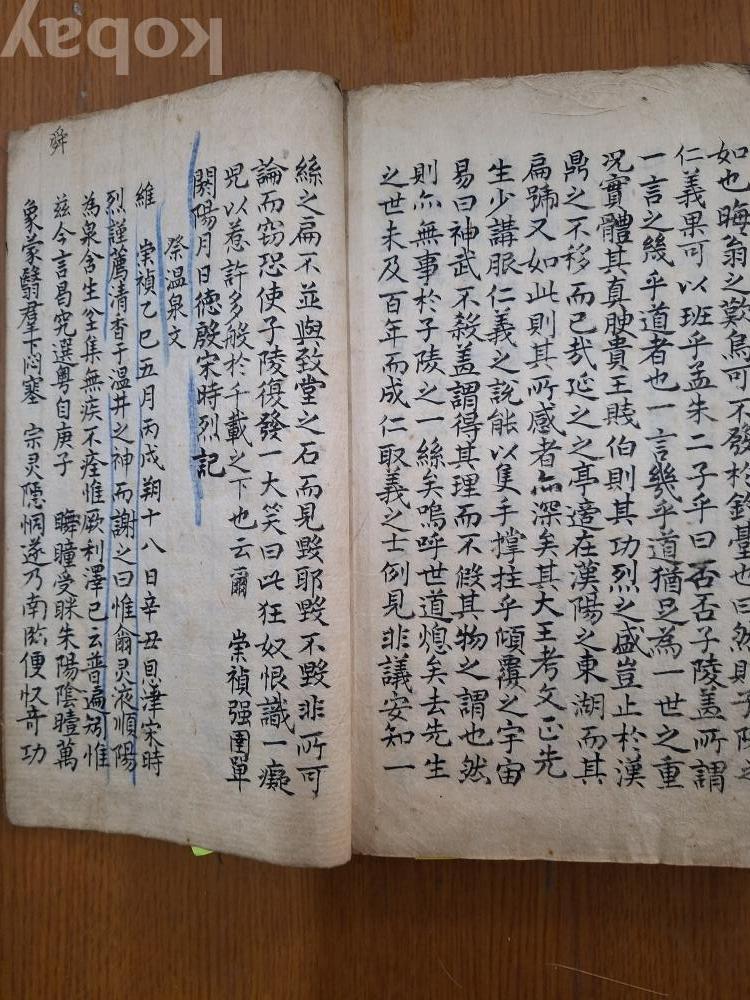 如也晦翁之歎烏可不發於釣臺也曰然則子陵之
仁義果可以班乎孟朱二子乎曰否否子陵盖所謂
一言之幾乎道者也一言幾乎道猶足為一世之重
况實體其真腴貴王賤伯則其功烈之盛豈止於漢
鼎之不移而已哉延之之亭適在漢陽之東湖而其
扁號又如此則其所感者亦深矣其大王考文正先
生少講服仁義之說能以隻手撑拄乎傾覆之宇宙
易曰神武不殺盖謂得其理而不假其物之謂也然
則亦無事於子陵之一絲矣嗚呼世道熄矣去先生
之世未及百年而成仁取義之士例見非議安知一
絲之扁不並與致堂之石而見毀耶毀不毀非所可
論而窃恐使子陵復發一大笑曰此狂奴恨識一癡
兕以惹許多般於千載之下也云爾 崇禎强圉單
閼陽月日德殷宋時烈記
祭温泉文
維 崇禎乙巳五月丙戌朔十八日辛丑恩津宋時
烈謹薦清香于温井之神而謝之曰惟爾灵液順陽
為泉含生坌集無疾不痊惟厥利澤已云普遍矧惟
玆今言曷究選粤自庚子 瞬瞳受眯朱陽陰曀萬
象蒙翳羣下悶塞 宗灵隱恫遂乃南臨便收奇功
舜
kobay